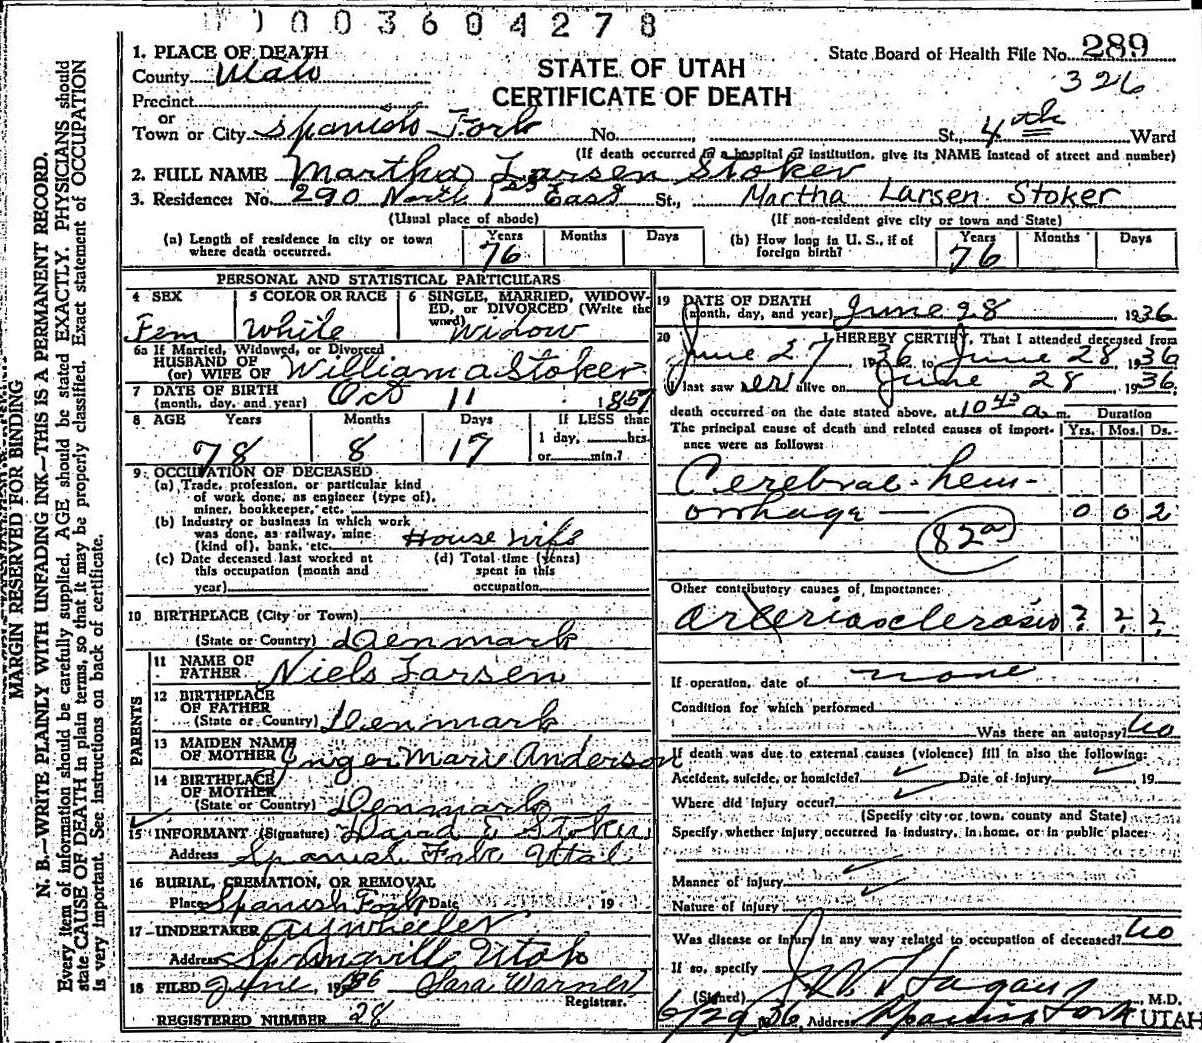 1003604278
1. PLACE OF DEATH
County Utah
Precinct
or
Town or City Spanish Fork No. , St., 4th Ward
STATE OF UTAH
CERTIFICATE OF DEATH
State Board of Health File No. 289
326
(If death occurred in a hospital or institution, give its NAME instead of street and number)
2. FULL NAME Martha Larsen Stoker
3. Residence: No. 290 North 1st East St., Martha Larsen Stoker
(Usual place of abode) (If non-resident give city or town and State)
(a) Length of residence in city or town where death occurred. Years 76 Months Days
(b) How long in U. S., if of foreign birth? Years 76 Months Days
PERSONAL AND STATISTICAL PARTICULARS
4 SEX Fem
5 COLOR OR RACE White
6 SINGLE, MARRIED, WIDOW-
ED, or DIVORCED (Write the
word) Widow
6a If Married, Widowed, or Divorced
HUSBAND OF
(or) WIFE OF William A Stoker
7 DATE OF BIRTH
(month, day, and year) Oct 11 1857
8 AGE Years 78 Months 8 Days 17 If LESS than
1 day, hrs.
or min.?
9 OCCUPATION OF DECEASED
(a) Trade, profession, or particular kind
of work done, as engineer (type of),
miner, bookkeeper, etc.
(b) Industry or business in which work
was done, as railway, mine
(kind of), bank, etc. House wife
(c) Date deceased last worked at
this occupation (month and
year)
(d) Total time (years)
spent in this
occupation
10 BIRTHPLACE (City or Town)
(State or Country) Denmark
PARENTS
11 NAME OF
FATHER Niels Larsen
12 BIRTHPLACE
OF FATHER
(State or Country) Denmark
13 MAIDEN NAME
OF MOTHER Inger Marie Anderson
14 BIRTHPLACE
OF MOTHER
(State or Country) Denmark
15 INFORMANT (Signature) E Stoker
Address Spanish Fork Utah
16 BURIAL, CREMATION, OR REMOVAL
Place Spanish Fork Date 19
17 UNDERTAKER A Y Wheeler
Address Springville Utah
18 FILED June, 1936 Sara Warner
Registrar.
REGISTERED NUMBER 28
19 DATE OF DEATH
(month, day, and year) June 28 1936
20 I HEREBY CERTIFY, That I attended deceased from
June 27 1936 to June 28 1936
I last saw er alive on June 28 1936
death occurred on the date stated above, at 10 45 a m. Duration
The principal cause of death and related causes of import-
ance were as follows: Yrs. Mos. Ds.
Cerebral hem-
orrhage — 0 0 2
82a
Other contributory causes of importance:
arteriosclerosis ? ? ?
If operation, date of none
Condition for which performed
Was there an autopsy? No
If death was due to external causes (violence) fill in also the following:
Accident, suicide, or homicide? Date of injury 19
Where did injury occur?
(Specify city or town, county and State)
Specify whether injury occurred in industry, in home, or in public place:
Manner of injury
Nature of injury
Was disease or injury in any way related to occupation of deceased? No
If so, specify
(Signed) J. W. Hagan, M.D.
6/29 1936, Address Spanish Fork UTAH
MARGIN RESERVED FOR BINDING
N. B.—WRITE PLAINLY WITH UNFADING INK—THIS IS A PERMANENT RECORD.
Every item of information should be carefully supplied. AGE should be stated EXACTLY. PHYSICIANS should
state CAUSE OF DEATH in plain terms, so that it may be properly classified. Exact statement of OCCUPATION
is very important. See instructions on back of certificate.